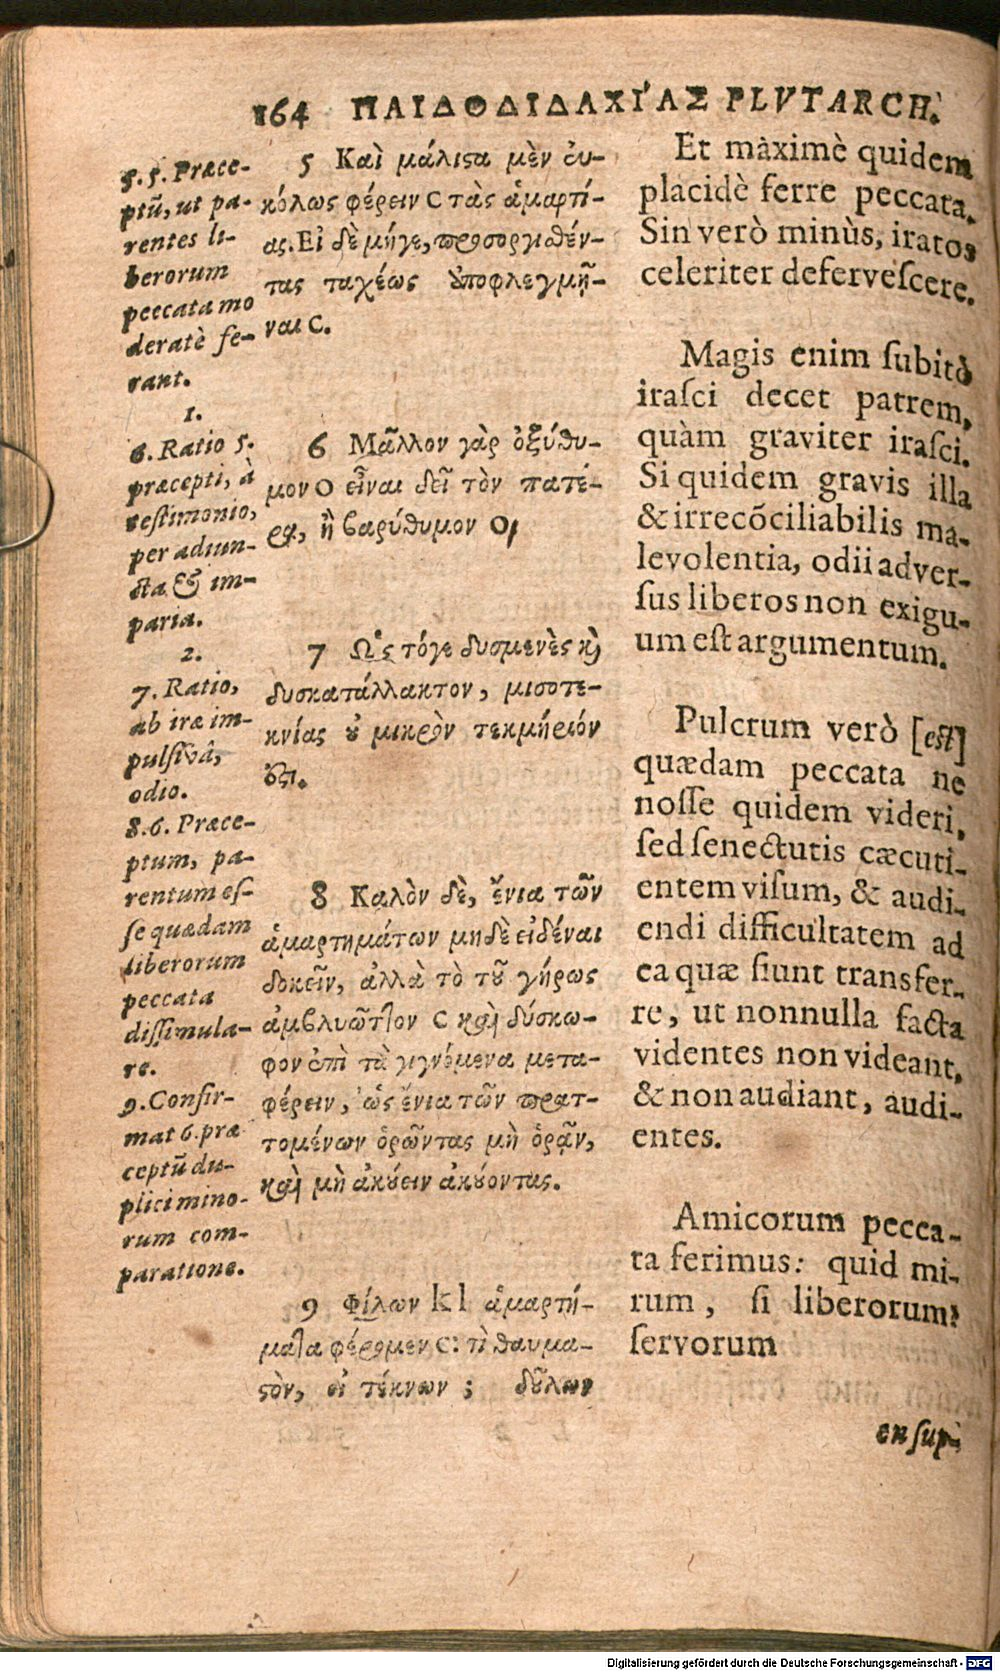 164 ΠΑΙΔΟΔΙΔΑΧΙ´ΑΣ PLVTARCH.
5.5. Præce-
ptũ, ut pa-
rentes li-
berorum
peccata mo
deratè fe-
rant.
1.
6. Ratio 5.
præcepti, à
testimonio,
per adiun-
cta & im-
paria.
2.
7. Ratio,
ab iræ im-
pulsivâ,
odio.
8.6. Præce-
ptum, pa-
rentum es-
se quædam
liberorum
peccata
dissimula-
re.
9. Confir-
mat 6. præ
ceptũ du-
plici mino-
rum com-
paratione.
5 Καὶ μάλιϛα μὲν ἐυ-
κόλως φέρειν C τὰς ἁμαρτί-
ας. Εἰ δὲ μήγε, προσοργιθέν-
τας ταχέως ὑποφλεγμῆ-
ναι C.
6 Μᾶλλον γὰρ ὀξύθυ-
μον O εἶναι δεῖ τὸν πατέ-
ρα, ἢ βαρύθυμον O,
7 Ὡς τόγε δυσμενὲς καὶ
δυσκατάλλακτον, μισοτε-
κνίας ȣ μικρὸν τεκμήριόν
ἐϛι.
8 Καλὸν δὲ, ἔνια τῶν
ἁμαρτημάτων μηδὲ εἰδέναι
δοκεῖν, ἀλλὰ τὸ τȣ͂ γήρως
ἀμβλυῶτ7ον C καὶ δύσκω-
φον ἐπὶ τὰ γιγνόμενα μετα-
φέρειν, ὡς ἔνια τῶν πρατ-
τομένων ὁρῶντας μὴ ὁρᾷν,
καὶ μὴ ἀκȣ́ειν ἀκȣ́οντας.
9 Φίλων k l ἁμαρτή-
ματα φέρομεν C: τὶ θαυμα-
ϛὸν, εἰ τέκνων ; δȣ́λων
Et màximè quidem
placidè ferre peccata.
Sin verò minùs, iratos
celeriter deferveſcere.
Magis enim ſubitò
iraſci decet patrem,
quàm graviter iraſci.
Si quidem gravis illa
& irrecõciliabilis ma-
levolentia, odii adver-
ſus liberos non exigu-
um eſt argumentum.
Pulcrum verò [eſt]
quædam peccata ne
noſſe quidem videri,
ſed ſenectutis cæcuti-
entem viſum, & audi-
endi difficultatem ad
ea quæ fiunt transfer-
re, ut nonnulla facta
videntes non videant,
& non audiant, audi-
entes.
Amicorum pecca-
ta ferimus: quid mi-
rum, ſi liberorum?
ſervorum
en ſup-
Digitalisierung gefördert durch die Deutsche Forschungsgemeinschaft - DFG